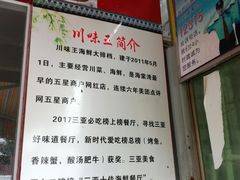 川味王简介
川味王海鲜大排档，建于2011年5月
1日，主要经营川菜、海鲜，是海棠湾最
早的五星商户网红店，连续六年美团点评
网五星商户。
2017三亚必吃榜上榜餐厅，寻找三亚
好味道餐厅，新时代爱吃榜总榜（烤鱼，
香辣蟹，酸汤肥牛）获奖。三亚美食